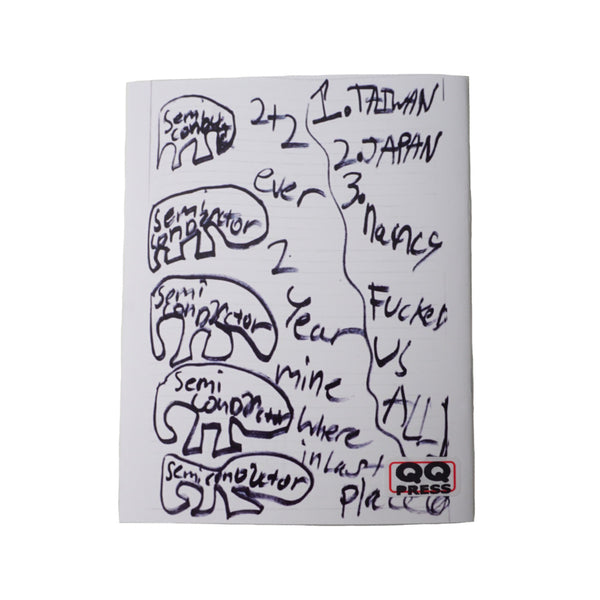 Semi
conduct
Semi
conductor
Semi
conductor
Semi
conductor
Semiconductor
2+2
ever
2
Year
mine
where
in Last
place
1. TAIWAN
2. JAPAN
3.
Nancy
Fucked
US
ALL
QQ
PRESS